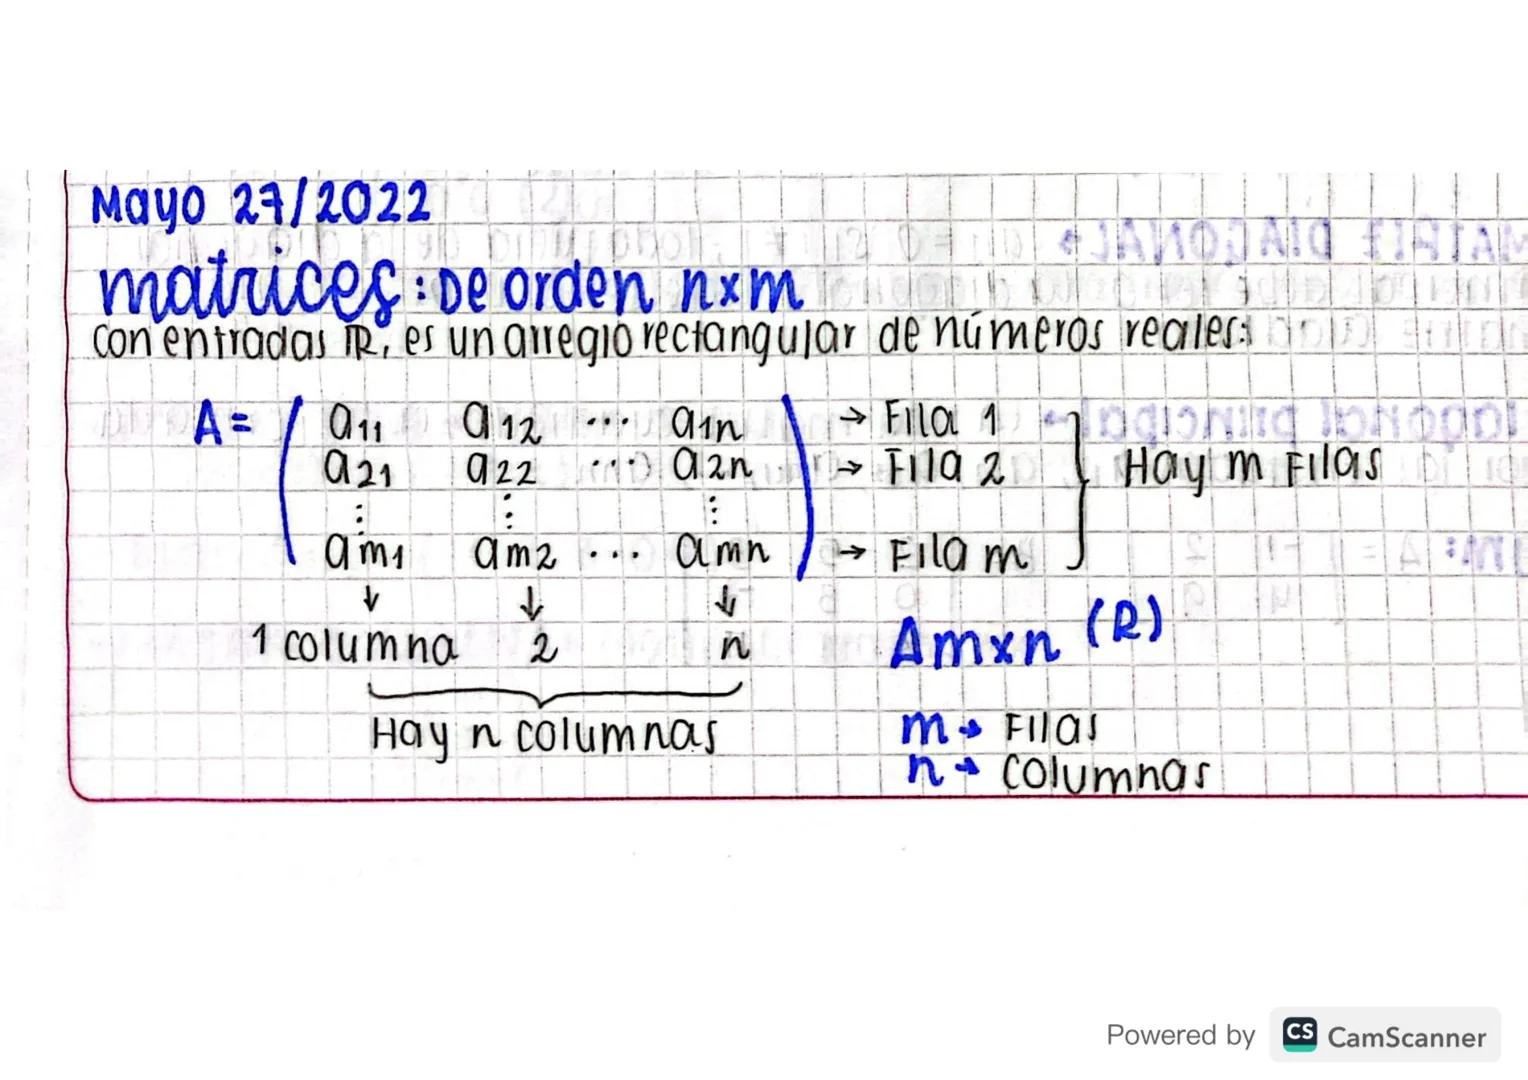 Mayo 27/2022
matrices: De orden nxm
Con entradas ℝ, es un arreglo rectangular de números reales:
A = ( a11 a12 ... a1n ) → Fila 1
a21 a22 ... a2n → Fila 2 } Hay m Filas
⋮ ⋮ ⋮
am1 am2 ... amn → Fila m
↓ ↓ ↓
1 columna 2 n
Amxn (R)
Hay n columnas
m → Filas
n → Columnas
Powered by CS CamScanner